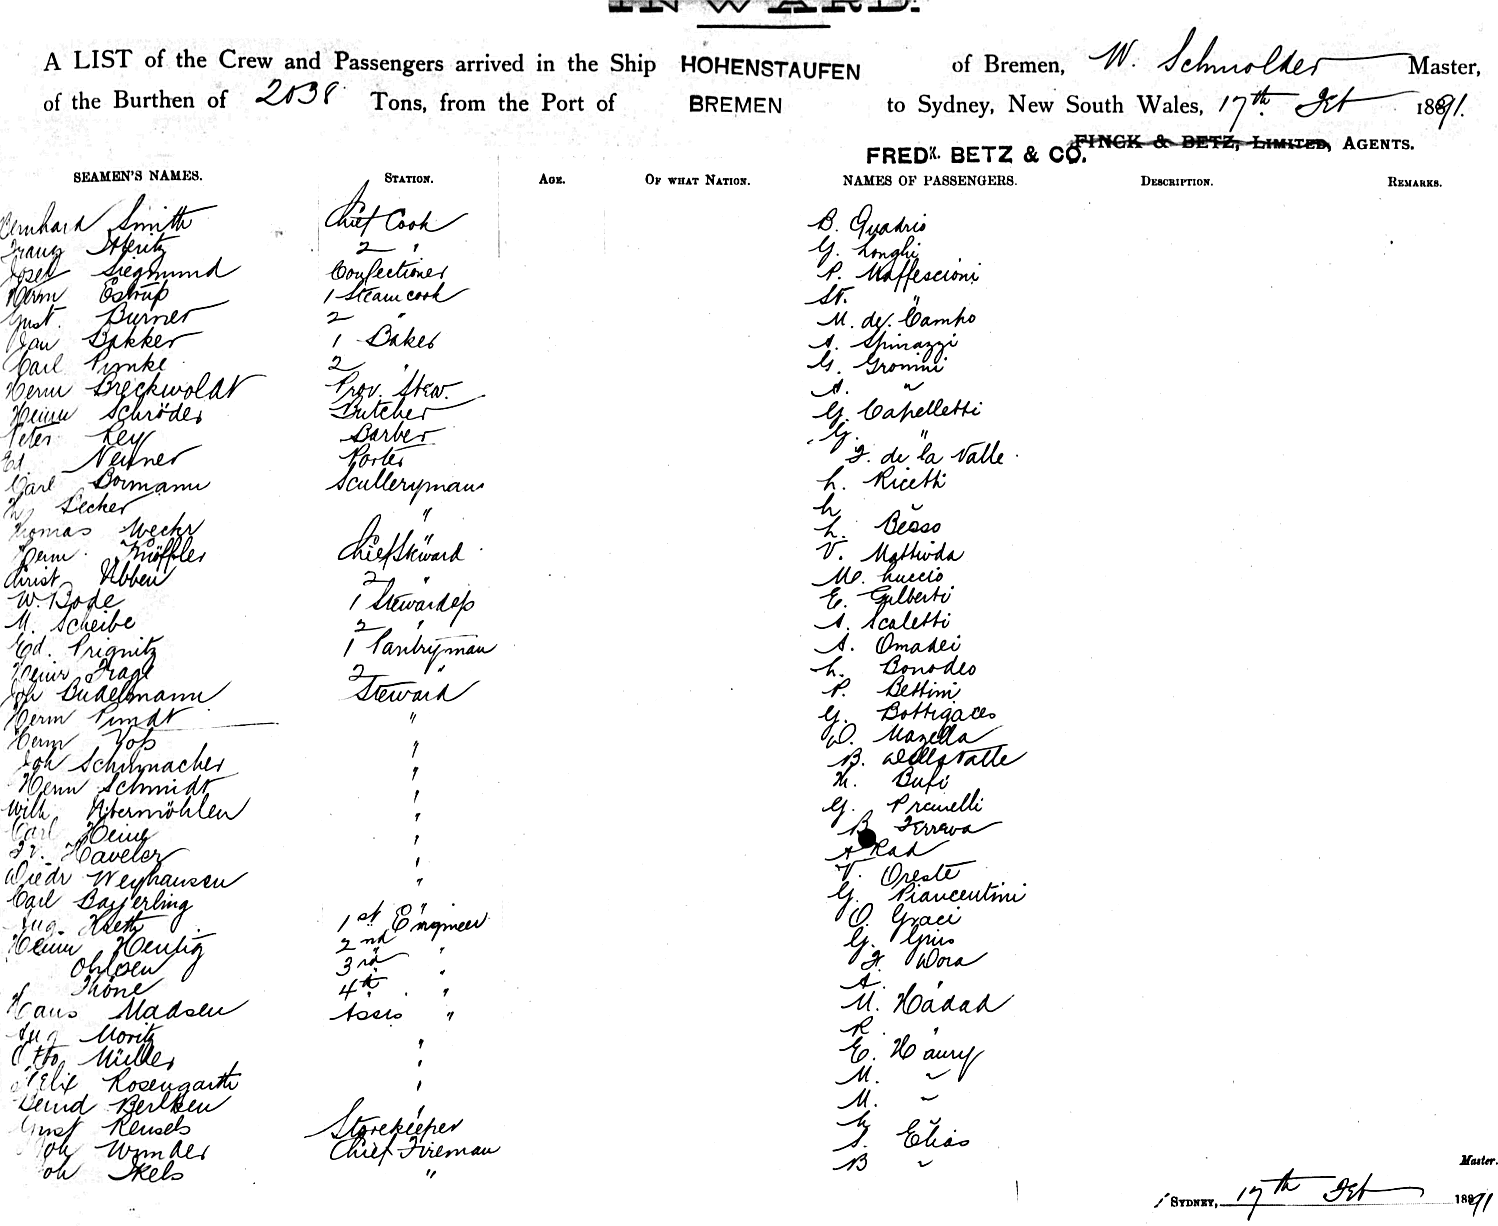 INWARD.
A LIST of the Crew and Passengers arrived in the Ship HOHENSTAUFEN of Bremen, W. Schmolder Master,
of the Burthen of 2038 Tons, from the Port of BREMEN to Sydney, New South Wales, 17th Feb 1891.
FREDK. BETZ & CO. FINCK & BETZ, LIMITED, AGENTS.
SEAMEN'S NAMES. STATION. AGE. OF WHAT NATION. NAMES OF PASSENGERS. DESCRIPTION. REMARKS.
Bernhard Smith Chief Cook B. Quadrio
Franz 2 " G. Longhi
Josef Siegmund Confectioner P. Maffescioni
Herm Estrup 1 Steam cook St. "
Gust. Burner 2 " M. de Campo
Jan Bakker 1 Baker A. Spinazzi
Carl Pimke 2 " G. Gromini
Herm Breckwoldt Prov. Stew. A. "
Heinr Schröder Butcher G. Capelletti
Peter Ley Barber G. "
Ed Neuner Porter F. de la Valle
Carl Bormann Sculleryman L. Ricetti
Becher " L. "
Thomas " L. Besso
Herm. Chief Steward V. Mattivda
Christ Ubben 2 " M. Luccio
W. Bode 1 Stewardess E. Gilberti
M. Scheibe 2 " A. Scaletti
Ed. Prignitz 1 Pantryman A. Omadei
Heinr 2 " L. Bonodeo
Joh Büdelmann Steward P. Bettini
Herm Pundt " G.
Herm Voss " D. Mazella
Joh Schumacher " B. Dellavalle
Herm Schmidt " M. Bufi
Wilh " G.
Carl Heine " B Ferrera
Fr. Haveler " A Rad
Diedr Weyhausen " V. Oreste
Carl Bayerling " G. Piancentini
Aug. 1st Engineer O. Graci
Heinr Hentig 2nd " G.
Ohlsen 3rd " F. Dora
Thöne 4th " A. "
Hans Madsen Assis " M. Hadad
Aug Moritz " R. "
Otto Müller " E. Haury
Felix Rosengarth " M. "
Bernd " M. "
Gust Reusels Storekeeper L. "
Joh Wunder Chief Fireman S. Elias
Joh Ikels " B "
Master.
SYDNEY, 17th Feb 1891